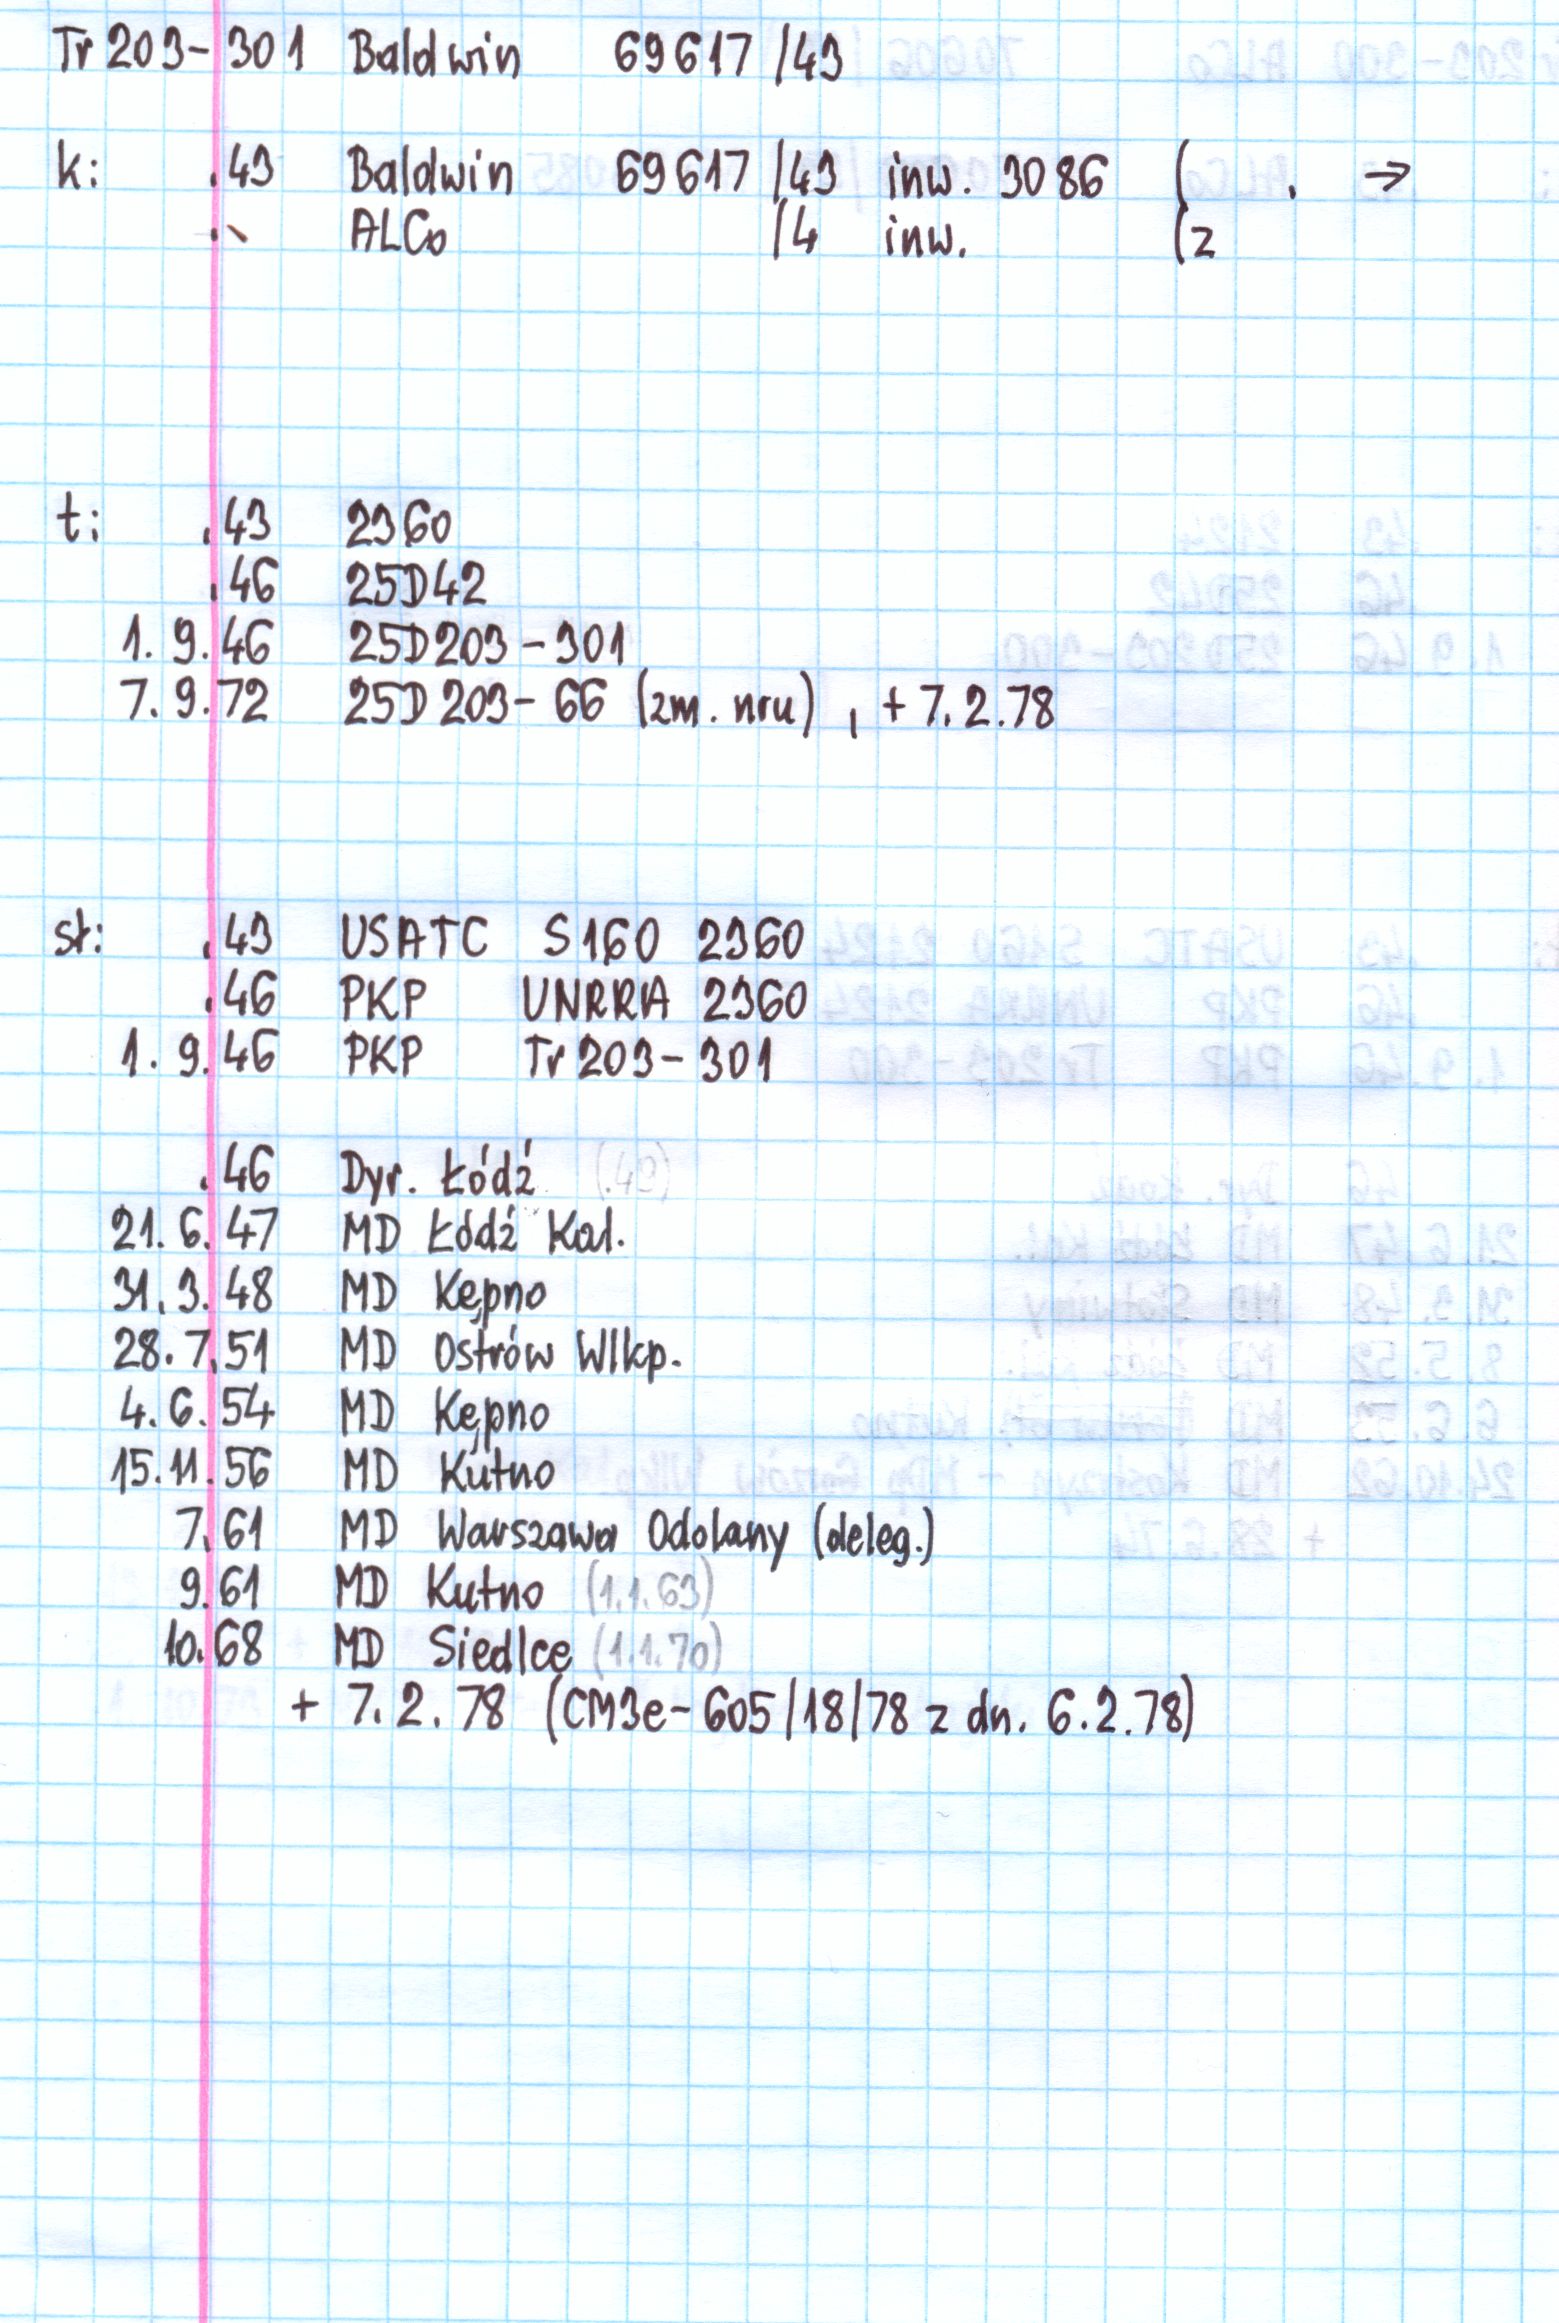 Tr 203-301 Baldwin 69617/43
k: .43 Baldwin 69617/43 inw. 3086 ( . →
. ALCo /4 inw. (z
t: .43 2360
.46 25D42
1.9.46 25D203-301
7.9.72 25D203-66 (zm. nru), +7.2.78
st: .43 USATC S160 2360
.46 PKP UNRRA 2360
1.9.46 PKP Tr 203-301
.46 Dyr. Łódź (.49)
21.6.47 MD Łódź Kal.
31.3.48 MD Kępno
28.7.51 MD Ostrów Wlkp.
4.6.54 MD Kępno
15.11.56 MD Kutno
7.61 MD Warszawa Odolany (deleg.)
9.61 MD Kutno (1.1.63)
10.68 MD Siedlce (1.1.70)
+ 7.2.78 (CM3e-605/18/78 z dn. 6.2.78)